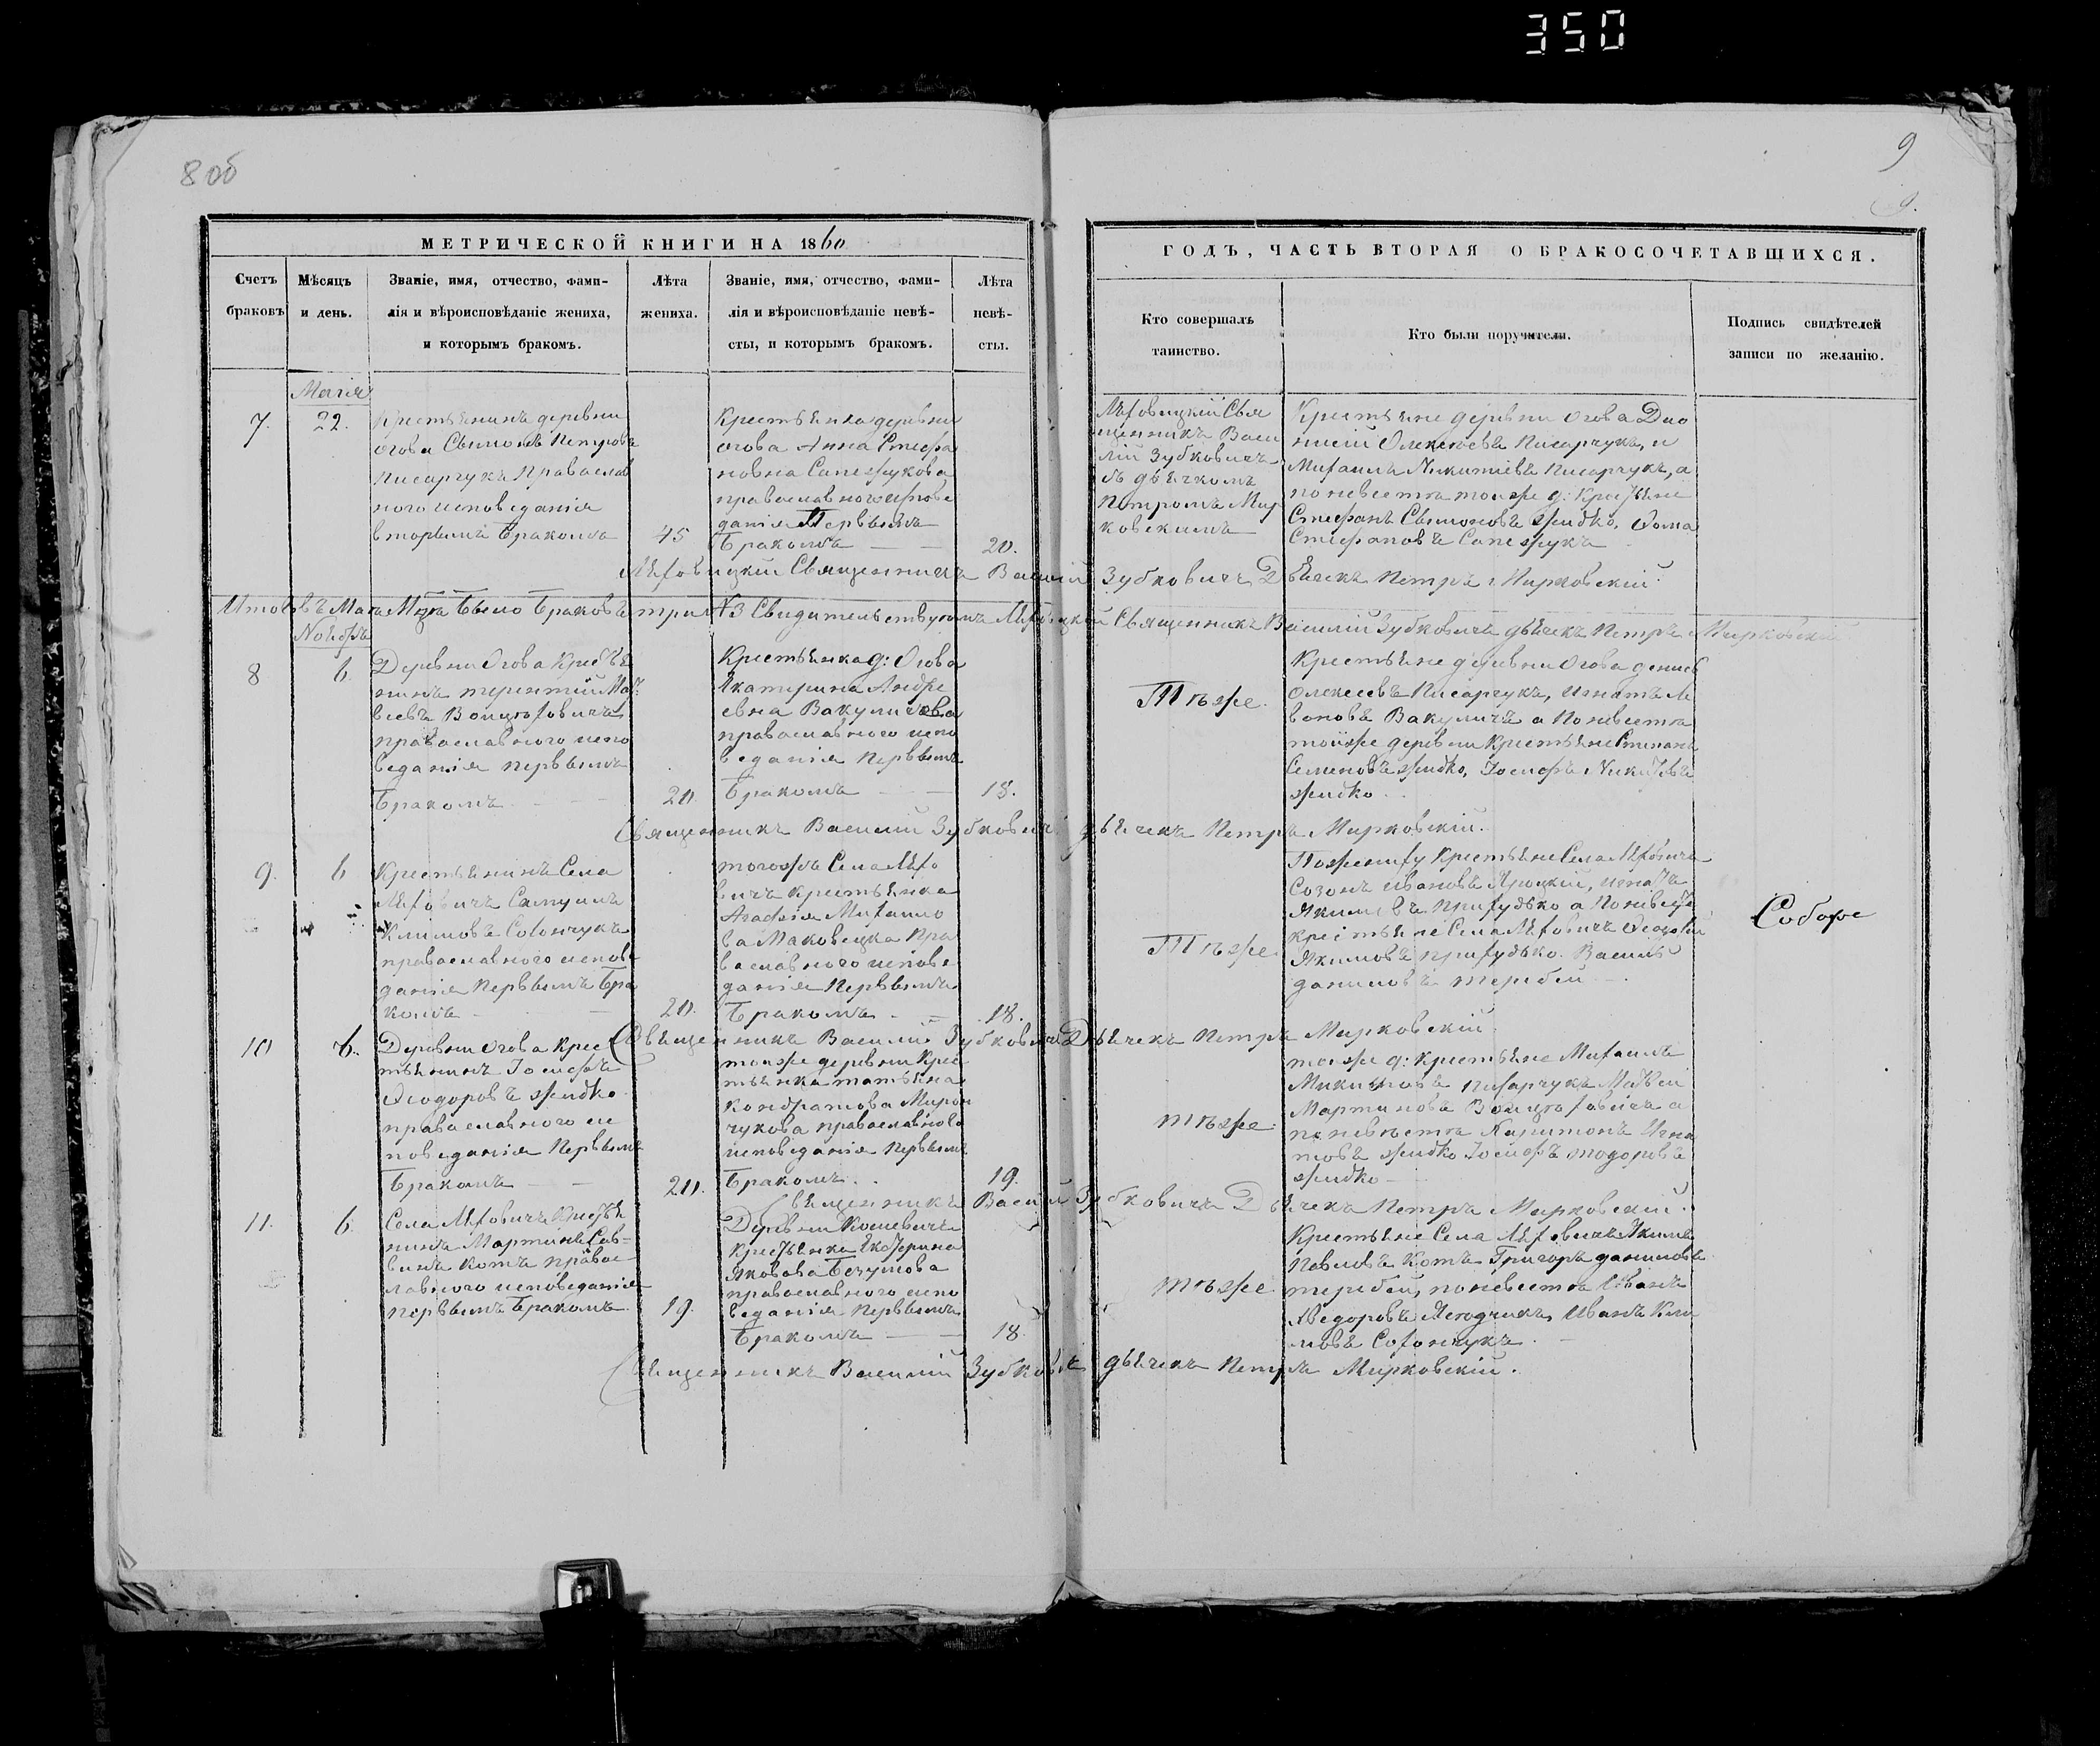 350
8 об
9
9.
МЕТРИЧЕСКОЙ КНИГИ НА 1860
Счетъ браковъ
Мѣсяцъ и день.
Званіе, имя, отчество, фами-
лія и вѣроисповѣданіе жениха,
и которымъ бракомъ.
Лѣта жениха.
Званіе, имя, отчество, фами-
лія и вѣроисповѣданіе невѣ-
сты, и которымъ бракомъ.
Лѣта невѣ-
сты.
ГОДЪ, ЧАСТЬ ВТОРАЯ О БРАКОСОЧЕТАВШИХСЯ.
Кто совершалъ
таинство.
Кто были поручители.
Подпись свидѣтелей
записи по желанію.
Маія
7.
22.
Крестьянинъ деревни
Огова Сымонъ Петровъ
Писарчукъ Православ
ного исповеданія
вторымъ Бракомъ
45
Крестьянка деревни
Огова Анна Стефа
новна Сапежукова
православного испове
данія Первымъ
Бракомъ
20.
Священникъ Васи
лій Зубковичъ
съ дьячкомъ
Петромъ Мир
ковскимъ
Крестьяне деревни Огова Дио
нисій Олексеевъ Писарчукъ, и
Михаилъ Никитіевъ Писарчукъ, а
по невестѣ тоиже д: Крестьяне
Стефанъ Сымоновъ Жидко, Фома
Стефановъ Сапежукъ
Священникъ Василій Зубковичъ Дьячекъ Петръ Мирковскій.
Итого въ Маіѣ было Браковъ три №3 Свидительствуютъ Священникъ Василій Зубковичъ дьячекъ Петръ Мирковскій
Ноября
8
6
Деревни Огова Кресть
нинъ терентій Мат
веевъ Войцеховичъ
православного испо
веданія первымъ
Бракомъ
20.
Крестьянка д: Огова
Екатерина Андре
евна Вакуличева
православного испо
веданія Первымъ
Бракомъ
18.
Тѣже.
Крестьяне деревни Огова денисъ
Олексеевъ Писарчукъ, Игнатъ Ле
воновъ Вакуличъ а По невестѣ
тойже деревни Крестьяне Степанъ
Семеновъ Жидко, Іосифъ Никитевъ
Жидко.
Священникъ Василій Зубковичъ дьячекъ Петръ Мирковскій.
9.
6
Крестьянинъ Села
Самуилъ
Климовъ Сохончукъ
православного испове
данія Первымъ Бра
комъ
20.
тогожъ Села
Крестьянка
Агафія Михаило
ва Маковецка Пра
вославного испове
данія Первымъ
Бракомъ
18.
Тѣже
По жениху Крестьяне Села
Созонъ Ивановъ Яроцкій, Игнатъ
Якимовъ Прихудько а По невес
крестьяне Села
Якимовъ прихудько. Василь
даниловъ теребей
Соборе
Священникъ Василій Зубковичъ Дьячекъ Петръ Мирковскій
10
6.
Деревни Огова Крес
тьянинъ Іосифъ
Феодоровъ Жидко
православного ис
поведанія Первымъ
Бракомъ
20.
тоиже деревни Крес
тьянка татьяна
Кондратова Мирон
чукова православного
исповеданія Первымъ
Бракомъ
19.
тѣже
тоиже д: Крестьяне Михаилъ
Микитовъ Писарчукъ Матвеи
Мартиновъ Войцеховичъ а
по невѣстѣ Харитонъ Игна
товъ Жидко Іосифъ тодоровъ
Жидко
Священникъ Василій Зубковичъ Дьячекъ Петръ Мирковскій.
11.
6.
Села Кресть
нинъ Мартинъ Сав-
винъ Котъ правос
лавного исповеданія
первымъ Бракомъ
19.
Деревни Кошевичъ
Крестьянка Екатерина
Яковова Безумова
православного испо
веданія Первымъ
Бракомъ
18.
тѣже
Крестьяне Села Якимъ
Павловъ Котъ Григоръ даниловъ
теребей, по невестѣ Иванъ
Иванъ Кли
мовъ Сохончукъ.
Священникъ Василій Зубковичъ дьячекъ Петръ Мирковскій.